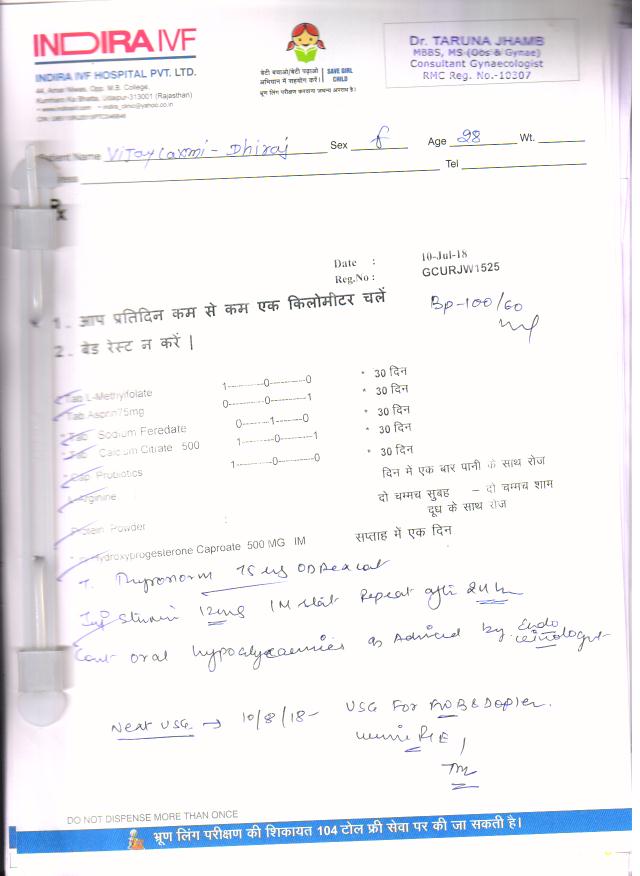 INDIRA IVF
INDIRA IVF HOSPITAL PVT. LTD.
44, Amar Niwas, Opp. M.B. College,
Kumharo Ka Bhatta, Udaipur-313001 (Rajasthan)
बेटी बचाओ/बेटी पढ़ाओ
अभियान में सहयोग करें।
SAVE GIRL
CHILD
भ्रूण लिंग परीक्षण करवाना जघन्य अपराध है।
Dr. TARUNA JHAMB
MBBS, MS (Obs & Gynae)
Consultant Gynaecologist
RMC Reg. No.-10307
Name Vijay Laxmi - Dhiraj Sex f Age 28 Wt.
Tel
Date : 10-Jul-18
Reg.No : GCURJW1525
1. आप प्रतिदिन कम से कम एक किलोमीटर चलें
Bp-100/60
2. बेड रेस्ट न करें |
Tab L-Methylfolate 1----------0----------0 * 30 दिन
Tab Asprin75mg 0----------0----------1 * 30 दिन
* Tab Sodium Feredate 0----------1----------0 * 30 दिन
* Tab Calcium Citrate 500 1----------0----------1 * 30 दिन
* Cap Probiotics 1----------0----------0 * 30 दिन
L-Arginine दिन में एक बार पानी के साथ रोज
Protein Powder : दो चम्मच सुबह – दो चम्मच शाम
दूध के साथ रोज
Hydroxyprogesterone Caproate 500 MG IM सप्ताह में एक दिन
T. Thyronorm 75 OD
Inj 12mg IM Repeat after 24
Cont oral hypoglycaemics as Advised by Endocrinologist
Next USG → 10/8/18- USG For
DO NOT DISPENSE MORE THAN ONCE
भ्रूण लिंग परीक्षण की शिकायत 104 टोल फ्री सेवा पर की जा सकती है।